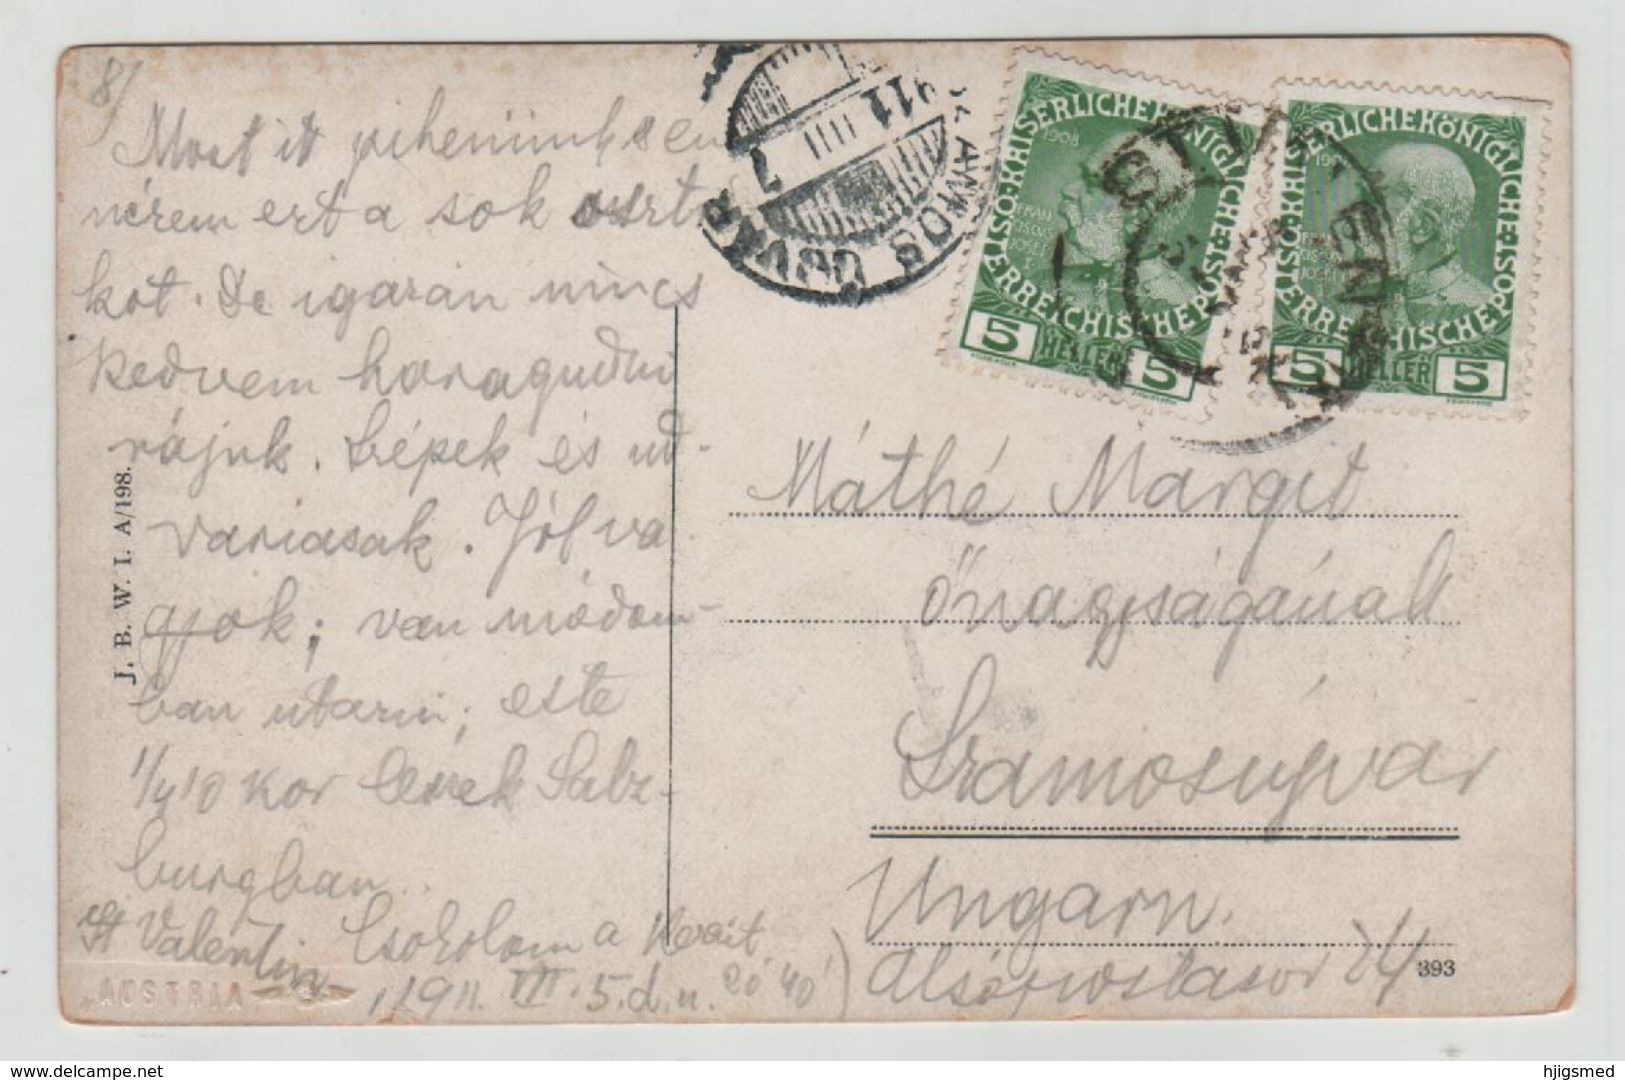 8/
Most it pihenünk s en
nérem ert a sok osztr
kot. De igazán nincs
kedvem haragudni
rájuk. Szépek és ud-
variasak. Jól va
gyok; van módom-
ban utazni; este
1/4 10 kor leszek Salz-
burgban.
St Valentin Csokolom a Kezeit
1911. VII. 5. d. u. 20' 40'
J. B. W. I. A/198.
AUSTRIA
SZAMOSUJVÁR
911
KAISERLICHE KÖNIGLICHE ÖSTERREICHISCHE POST
1908
FRAN
JOSEF
5 HELLER 5
KAISERLICHE KÖNIGLICHE ÖSTERREICHISCHE POST
5 HELLER 5
ST. VALENTIN
Máthé Margit
Őnagyságának
Szamosujvár
Ungarn.
Alsópiactasor 24
393
delcampe.net
hjigsmed